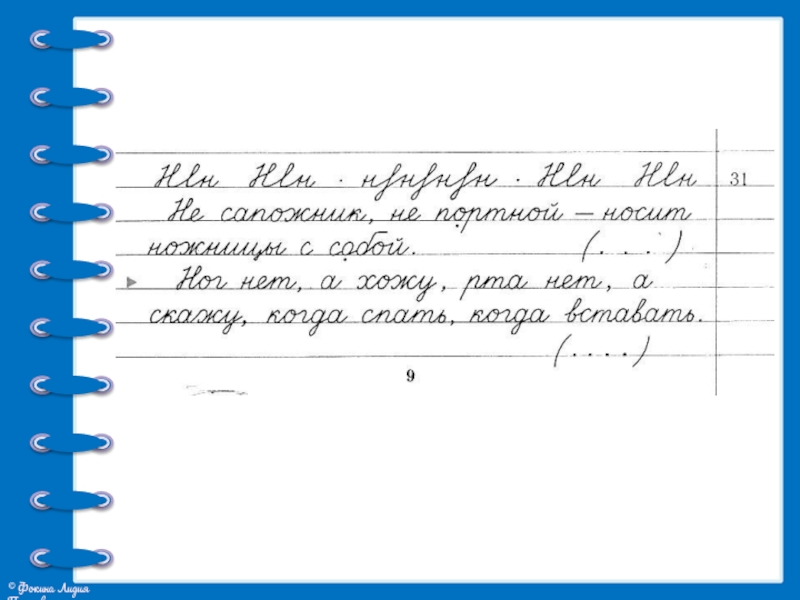 Ннн Ннн · ннннннн · Ннн Ннн 31
Не сапожник, не портной – носит
ножницы с собой. (. . . )
Ног нет, а хожу, рта нет, а
скажу, когда спать, когда вставать.
(. . . .)
9
© Фокина Лидия